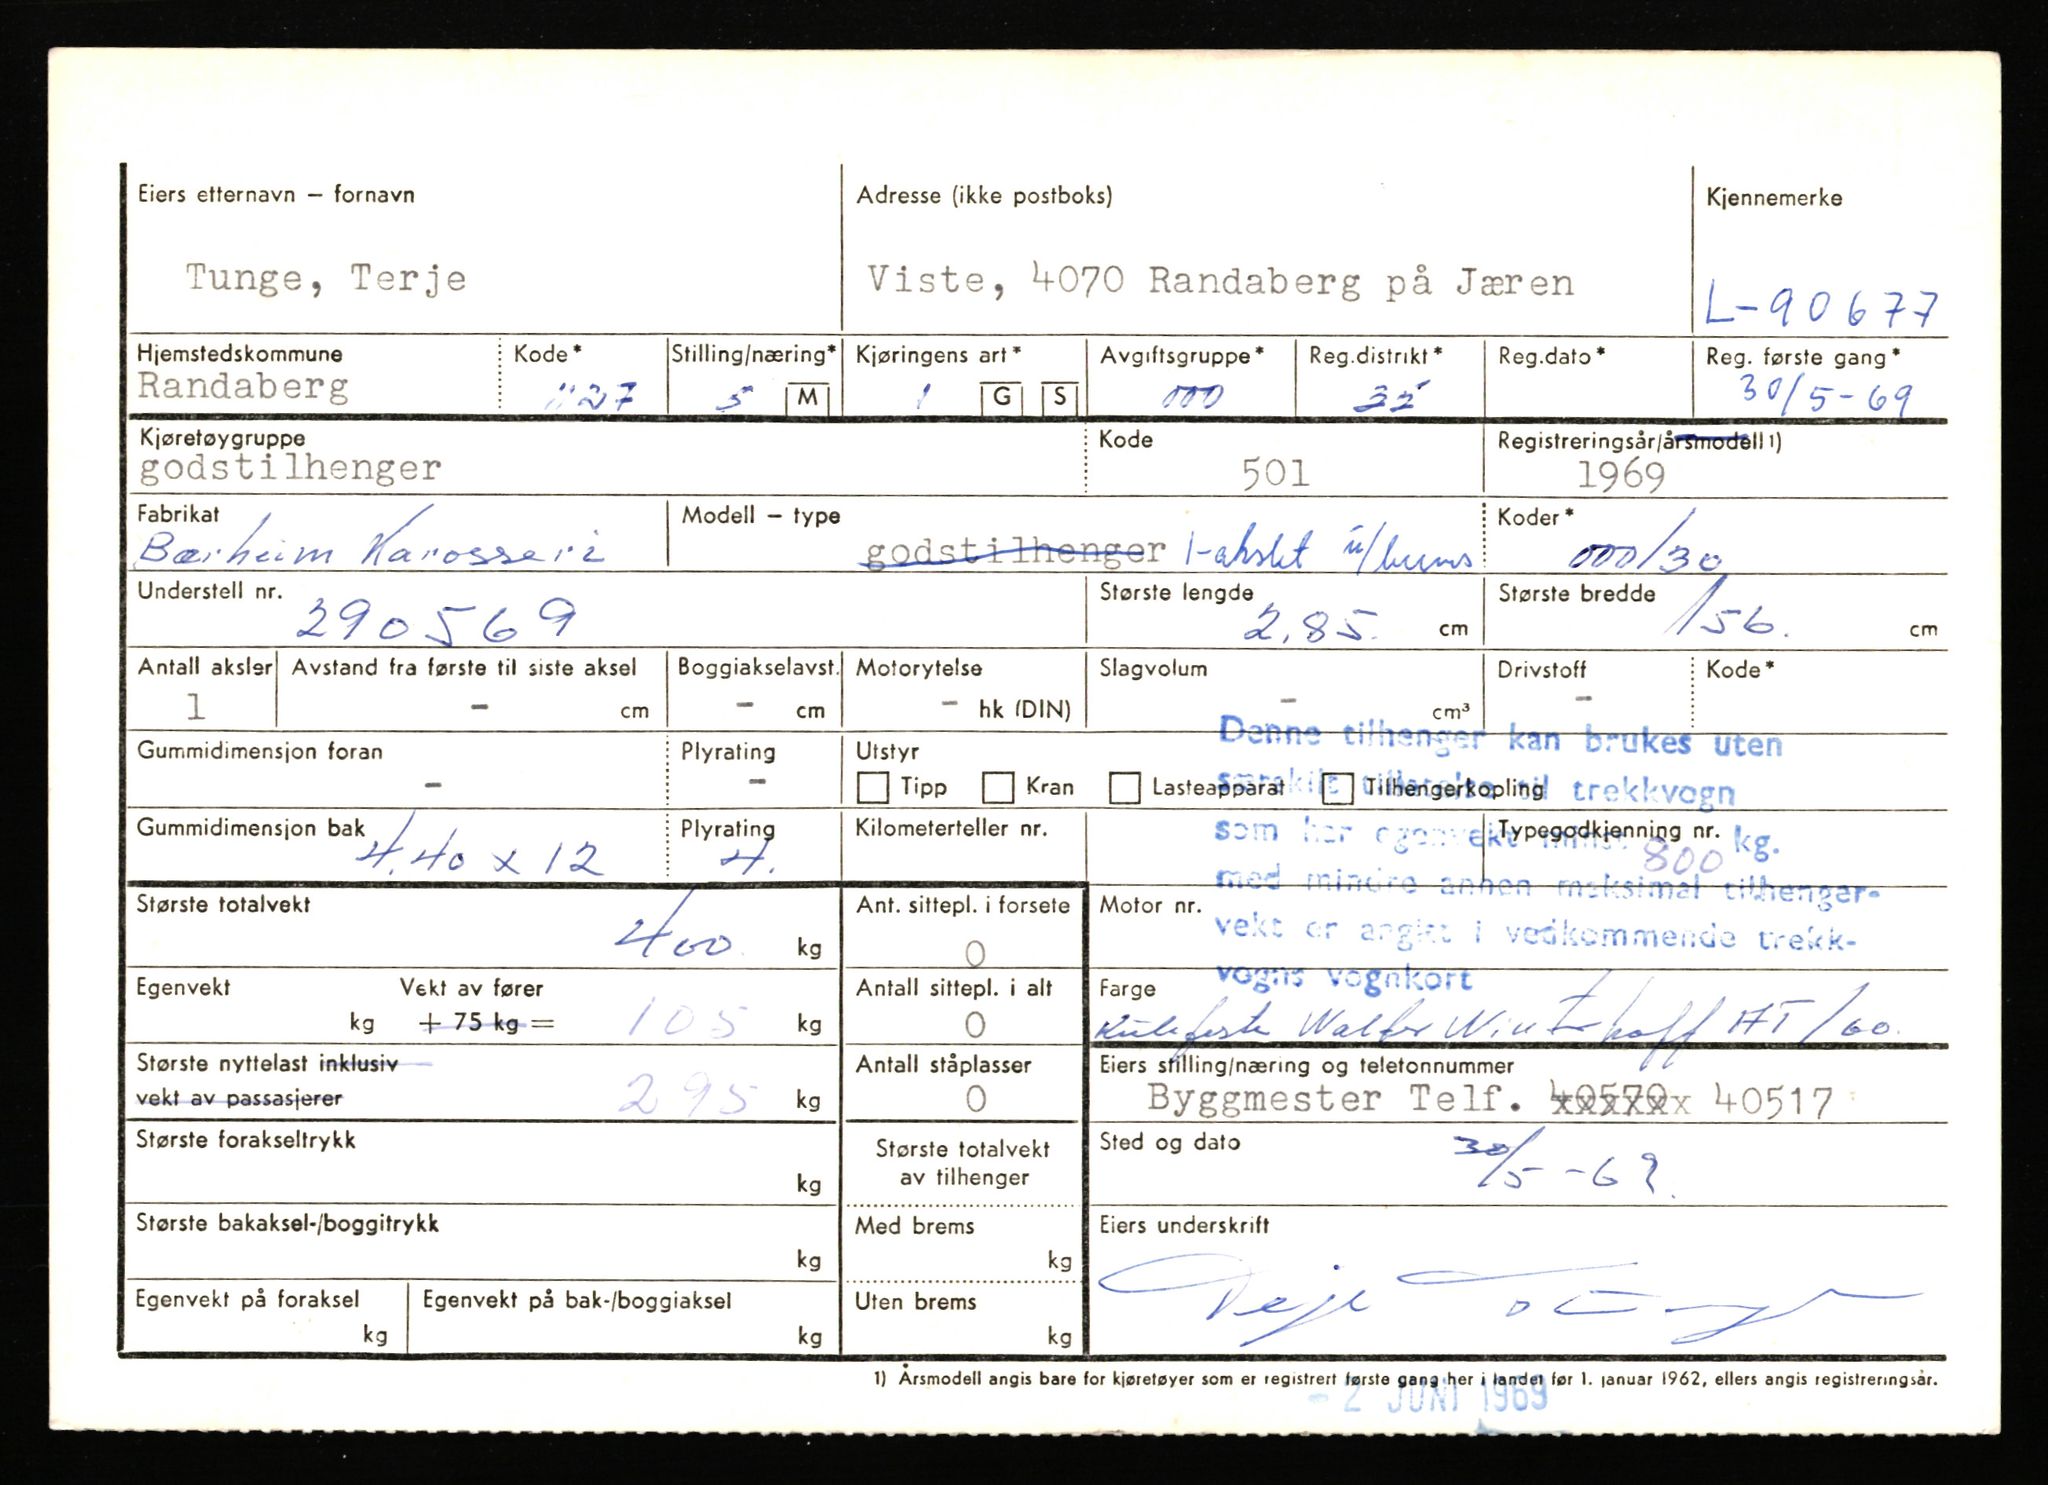 Eiers etternavn – fornavn
Adresse (ikke postboks)
Kjennemerke
Tunge, Terje
Viste, 4070 Randaberg på Jæren
L-90677
Hjemstedskommune
Kode*
Stilling/næring*
Kjøringens art*
Avgiftsgruppe*
Reg.distrikt*
Reg.dato*
Reg. første gang*
Randaberg
1127
5 M
1 G S
000
35
30/5-69
Kjøretøygruppe
Kode
Registreringsår/årsmodell 1)
godstilhenger
501
1969
Fabrikat
Modell – type
Koder*
Bærheim Karosseri
godstilhenger 1-akslet u/brems
000/30
Understell nr.
Største lengde
Største bredde
290569
2,85. cm
156. cm
Antall aksler
Avstand fra første til siste aksel
Boggiakselavst.
Motorytelse
Slagvolum
Drivstoff
Kode*
1
- cm
- cm
- hk (DIN)
- cm³
-
Denne tilhenger kan brukes uten
særskilt tillatelse til trekkvogn
som har egenvekt minst 800 kg.
med mindre annen maksimal tilhenger-
vekt er angitt i vedkommende trekk-
vogns vognkort
Gummidimensjon foran
Plyrating
Utstyr
-
-
Tipp
Kran
Lasteapparat
Tilhengerkopling
Gummidimensjon bak
Plyrating
Kilometerteller nr.
Typegodkjenning nr.
4.40 x 12
4.
Største totalvekt
Ant. sittepl. i forsete
Motor nr.
400 kg
0
Egenvekt
Vekt av fører
Antall sittepl. i alt
Farge
kg + 75 kg = 105 kg
0
Kulefeste Walter Winterhoff AT/60.
Største nyttelast inklusiv
Antall ståplasser
Eiers stilling/næring og telefonnummer
vekt av passasjerer
295 kg
0
Byggmester Telf. 40570 40517
Største forakseltrykk
Største totalvekt
av tilhenger
Sted og dato
kg
30/5-69.
Største bakaksel-/boggitrykk
Med brems
Eiers underskrift
kg
kg
Terje Tunge
Egenvekt på foraksel
Egenvekt på bak-/boggiaksel
Uten brems
kg
kg
kg
1) Årsmodell angis bare for kjøretøyer som er registrert første gang her i landet før 1. januar 1962, ellers angis registreringsår.
- 2 JUNI 1969